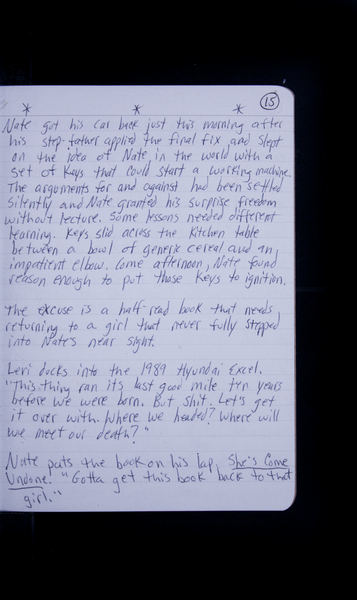 15
* * *
Nate got his car back just this morning after
his step-father applied the final fix and slept
on the idea of Nate in the world with a
set of keys that could start a working machine.
The arguments for and against had been settled
silently and Nate granted his surprise freedom
without lecture. Some lessons needed different
learning. Keys slid across the kitchen table
between a bowl of generic cereal and an
impatient elbow. Come afternoon, Nate found
reason enough to put those keys to ignition.
The excuse is a half-read book that needs
returning to a girl that never fully stepped
into Nate's near sight.
Levi ducks into the 1989 Hyundai Excel.
"This thing ran its last good mile ten years
before we were born. But shit. Let's get
it over with. Where we headed? Where will
we meet our death?"
Nate pats the book on his lap, She's Come
Undone. "Gotta get this book back to that
girl."